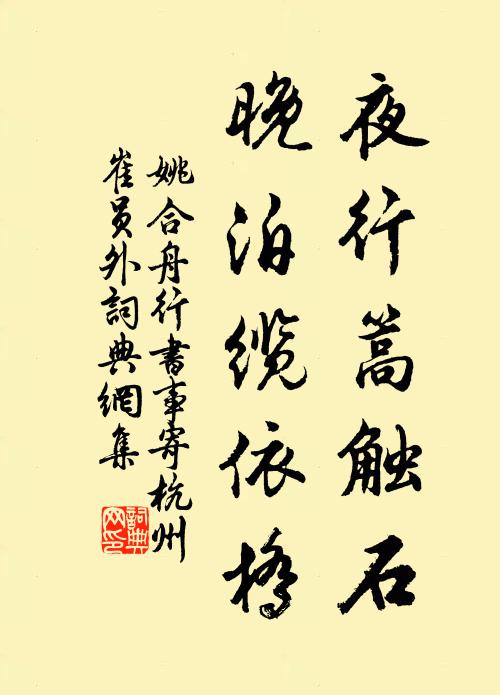 夜行篙触石
晚泊缆依橋
姚合舟行書事寄杭州
崔員外詞典網集
詞典
网印